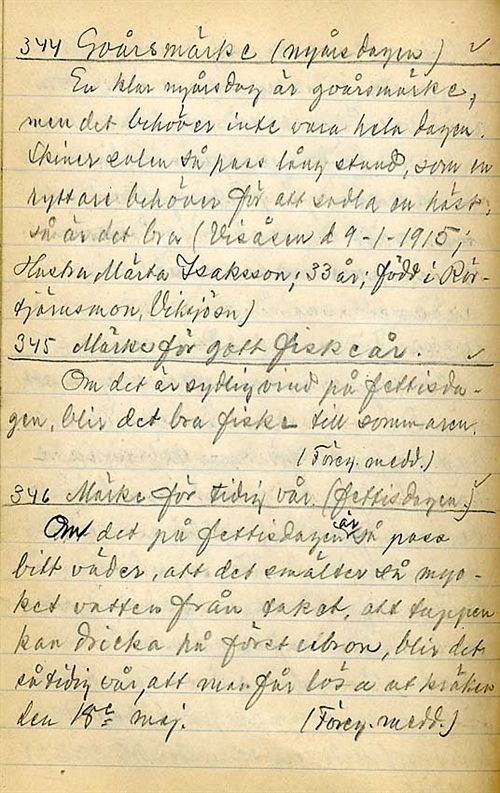 344 Goårsmärke (nyårsdagen) ✓
En klar nyårsdag är goårsmärke,
men det behöver inte vara hela dagen.
Skiner solen så pass lång stund, som en
ryttare behöver för att sadla en häst,
så är det bra (Visåsen d 9-1-1915;
Hustru Märta Isaksson; 33 år; född i Rör-
tjärnsmon, Viksjön)
345 Märke för gott fiskeår. ✓
Om det är sydlig vind på fettisda-
gen, blir det bra fiske till sommaren.
(Föreg. medd.)
346 Märke för tidig vår. (fettisdagen.) ✓
Om det på fettisdagen är så pass
blitt väder, att det smälter så myc-
ket vatten från taket, att tuppen
kan dricka på förstubron, blir det
så tidig vår, att man får lös a ut kräken
den 18e maj. (Föreg. medd.)